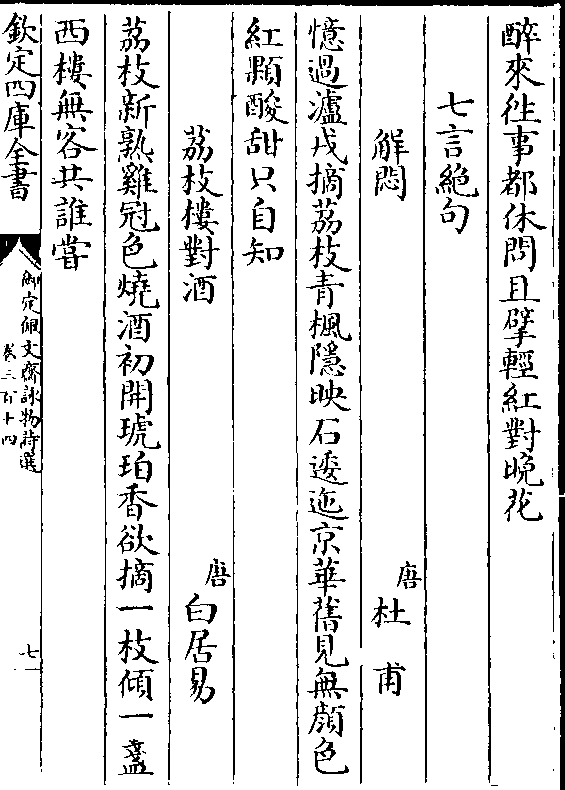 醉來徃事都休問且擘輕紅對晚花
七言絶句
解悶　唐杜甫
憶過瀘戎摘荔枝青楓隱映石逶迤京華舊見無顔色
紅顆酸甜只自知
荔枝樓對酒　唐白居易
荔枝新熟雞冠色燒酒初開琥珀香欲摘一枝傾一盞
西樓無客共誰嘗
欽定四庫全書
御定佩文齋詠物詩選
卷三百十四
七